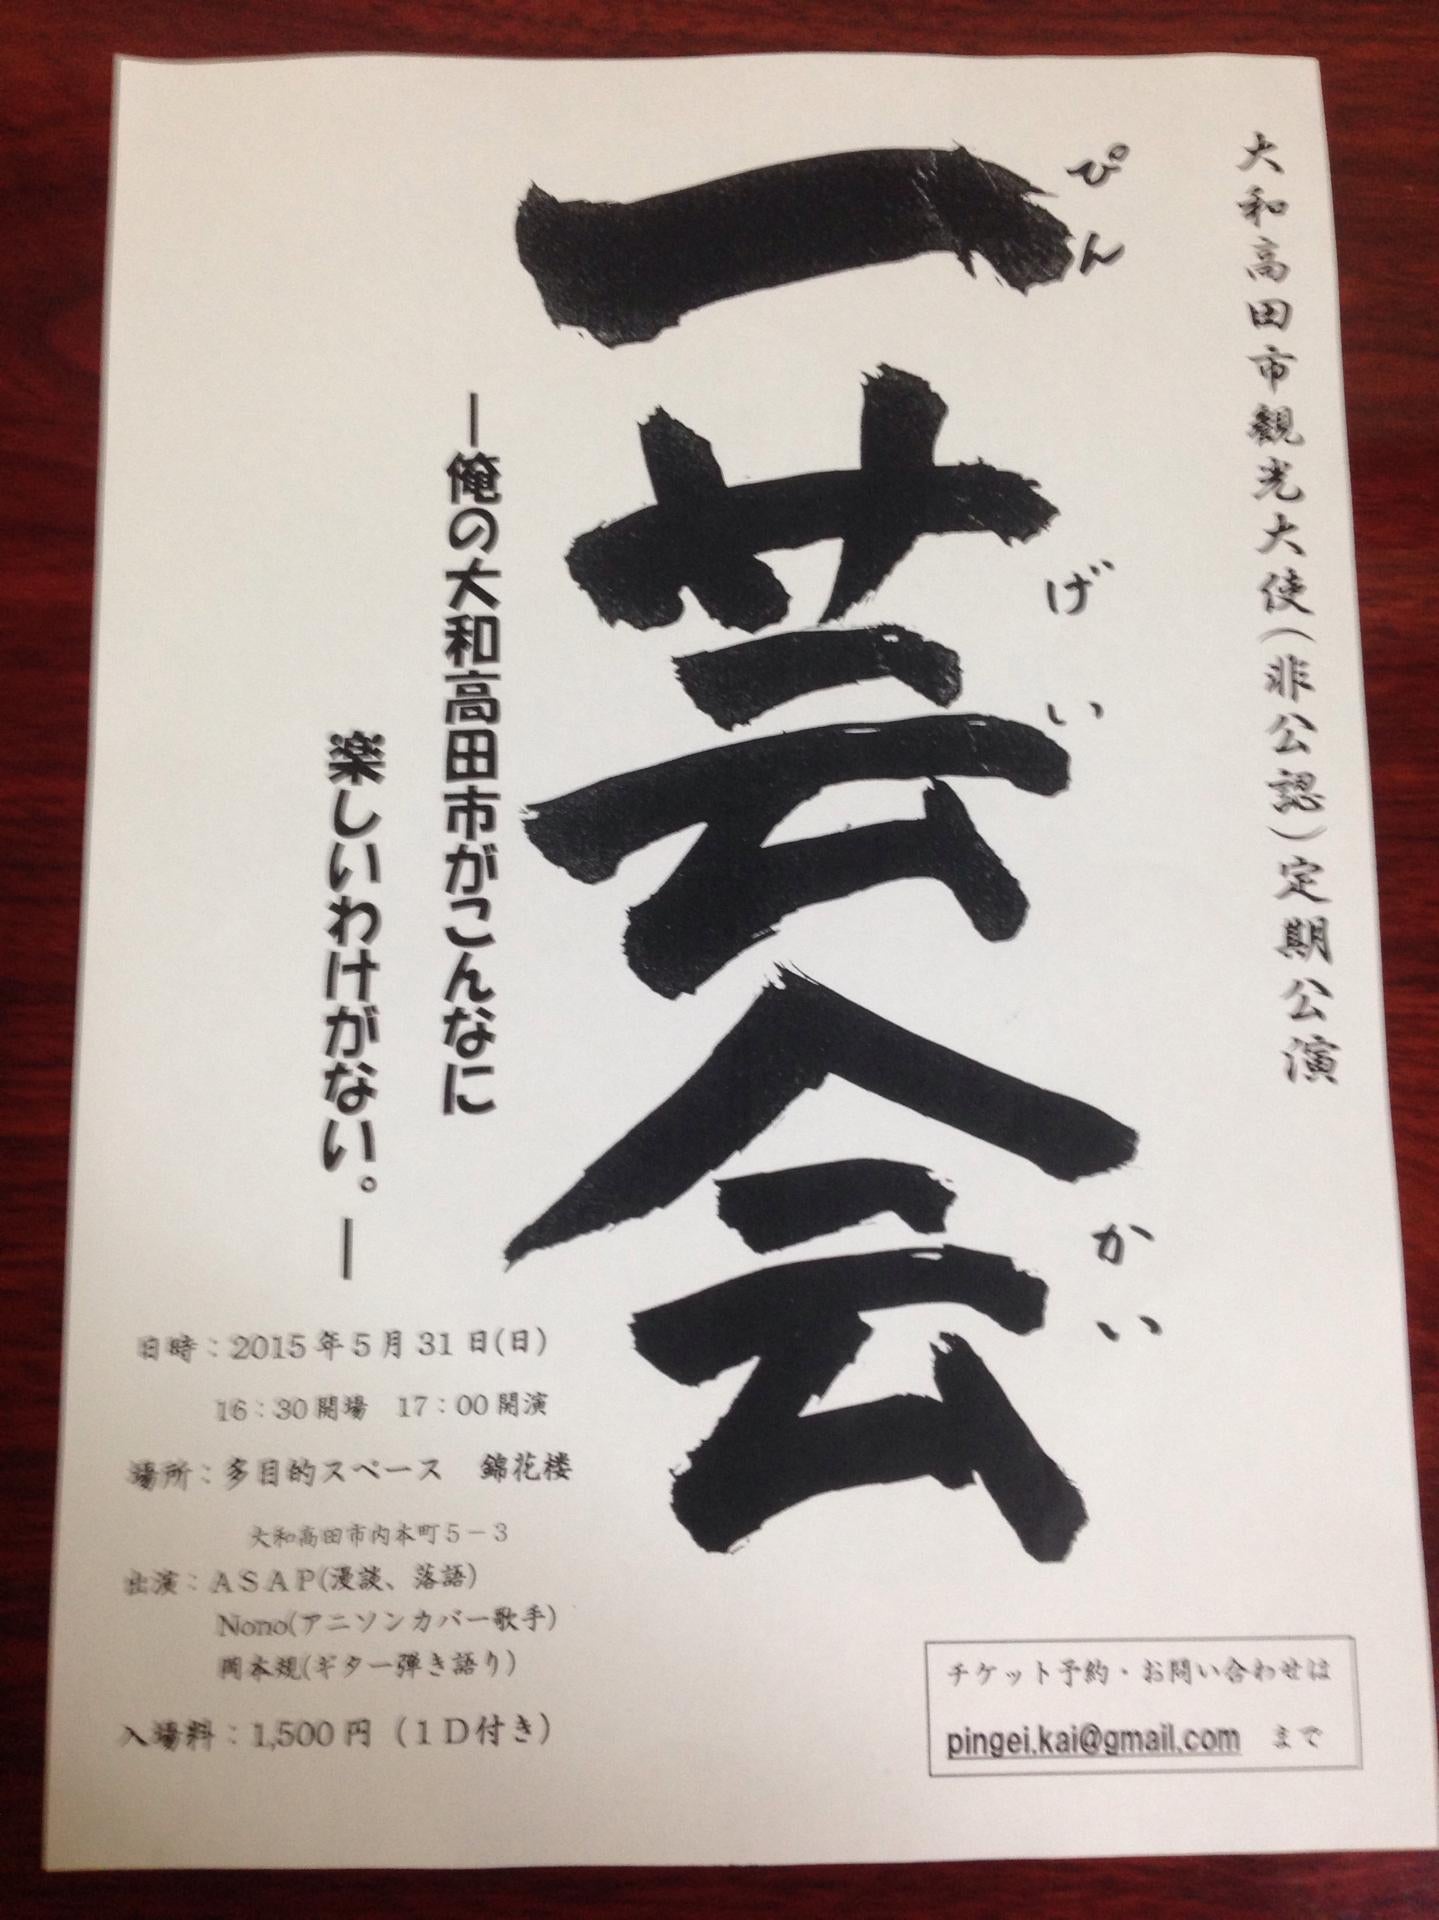 大和高田市観光大使(非公認)定期公演
一芸会
ぴんげいかい
―俺の大和高田市がこんなに
楽しいわけがない。―
日時：2015年5月31日(日)
16：30開場　17：00開演
場所：多目的スペース　錦花楼
大和高田市内本町5－3
出演：ASAP(漫談、落語)
Nono(アニソンカバー歌手)
岡本規(ギター弾き語り)
入場料：1,500円（1D付き）
チケット予約・お問い合わせは
pingei.kai@gmail.com　まで